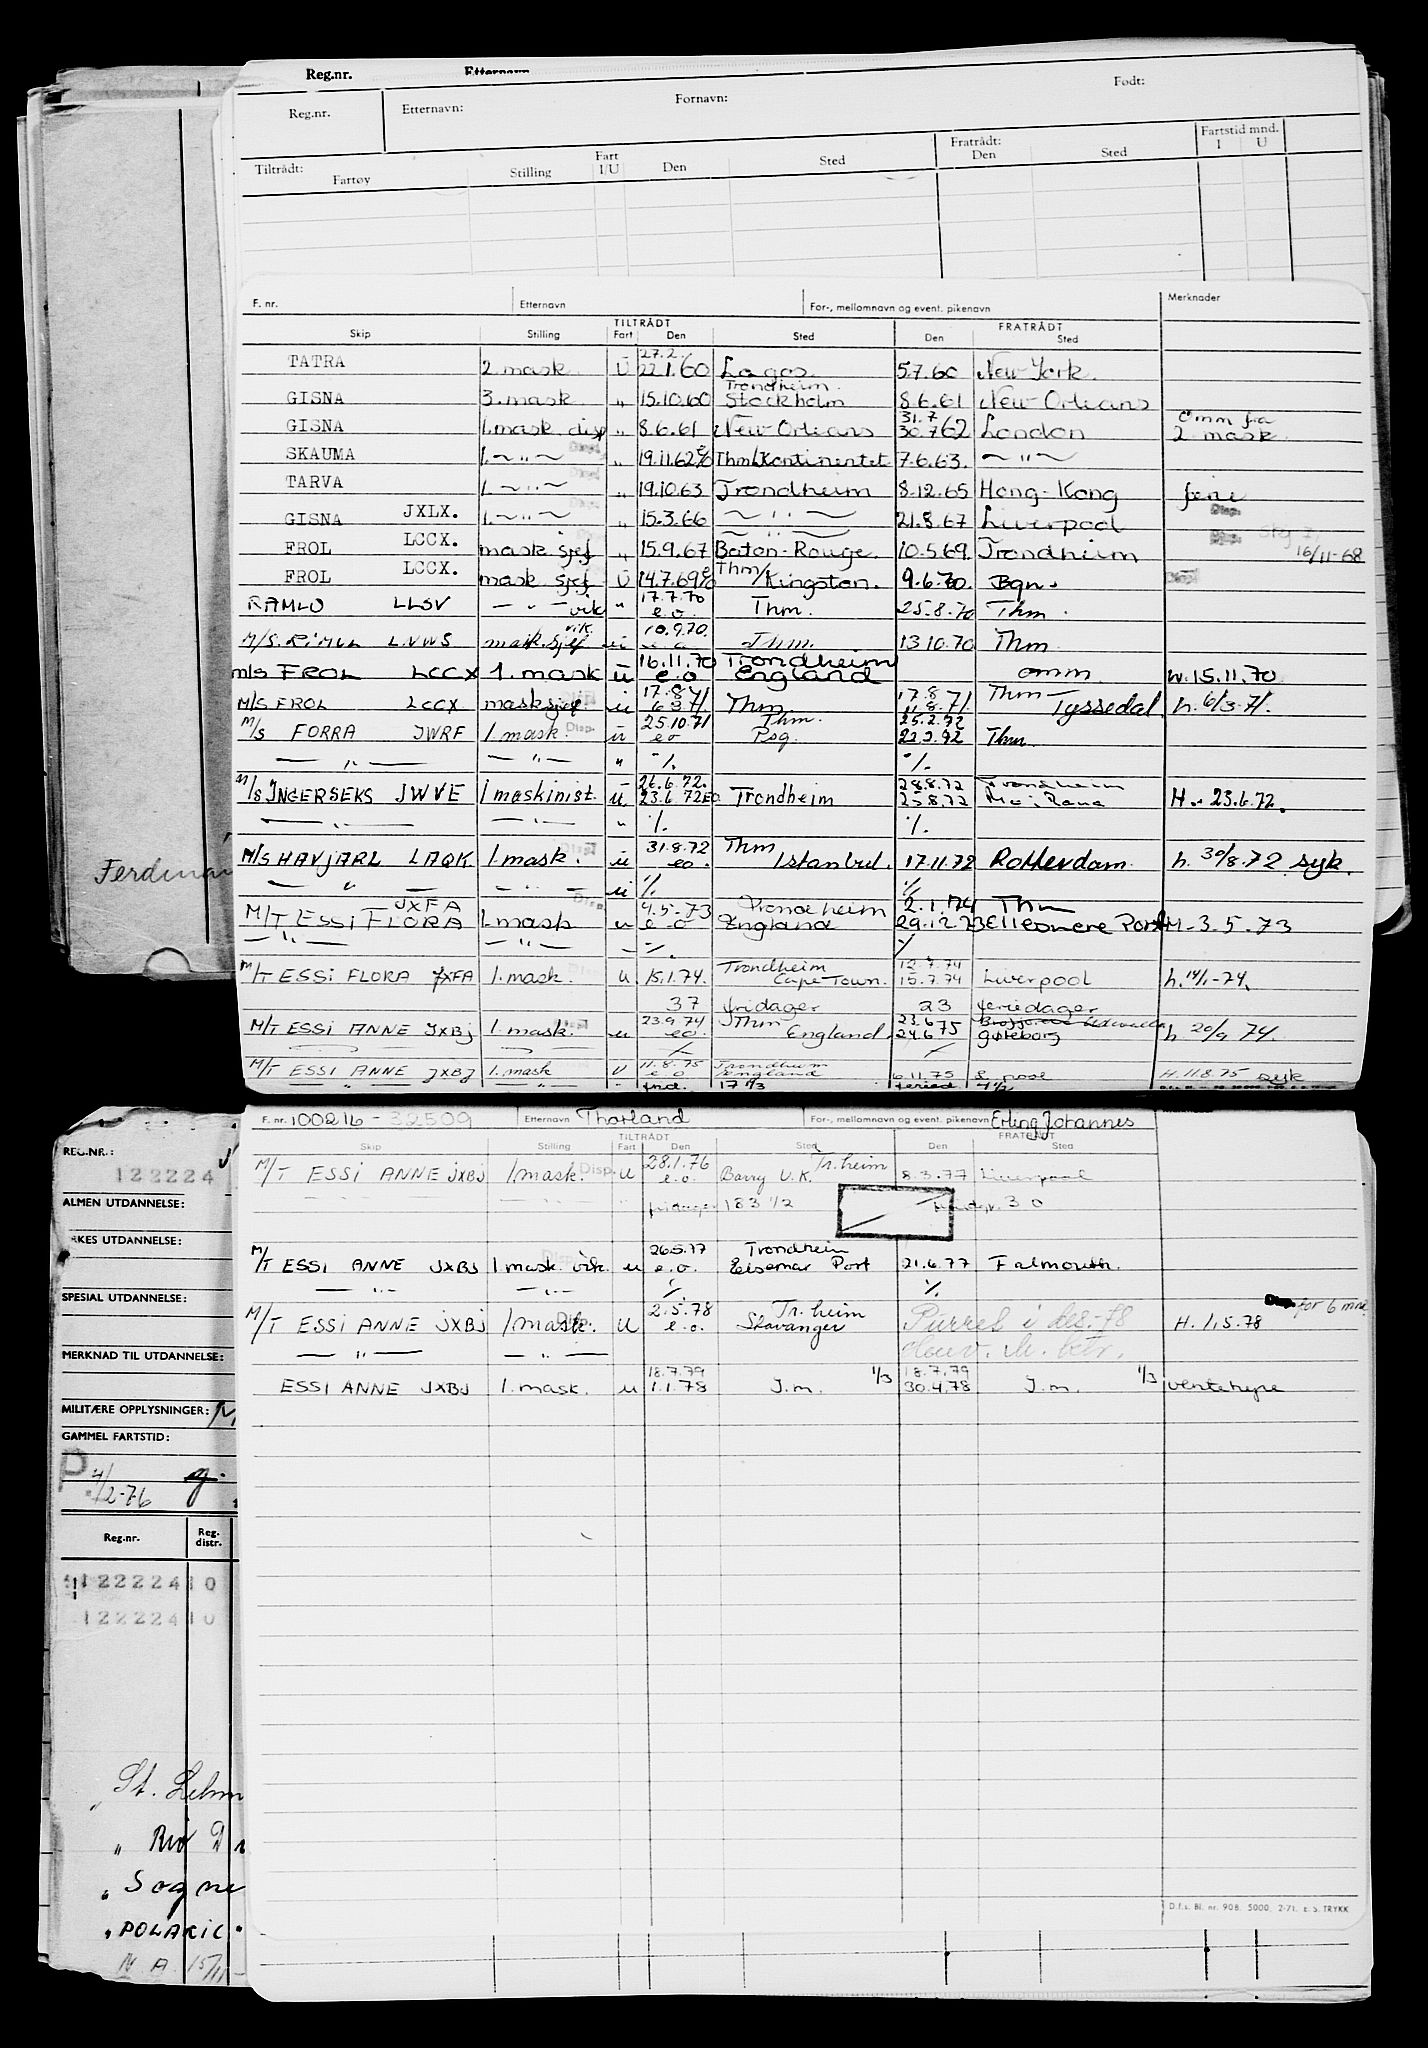 Reg.nr. Etternavn
Reg.nr. Etternavn: Fornavn: Født:
Tiltrådt: Fartøy Stilling Fart I/U Den Sted Fratrådt: Den Sted Fartstid mnd. I U
F. nr. Etternavn For-, mellomnavn og event. pikenavn Merknader
Skip Stilling TILTRÅDT Fart Den Sted FRATRÅDT Den Sted
27.2.
TATRA 2. mask. U 22.1.60 Lagos. 5.7.60 New York.
Trondheim.
GISNA 3. mask. " 15.10.60 Stockholm 8.6.61 New Orleans
31.7 omm fra
GISNA 1. mask disp " 8.6.61 New Orleans 30.7.62 London 2. mask
SKAUMA 1. ~ " ~ " 19.11.62 Thm/Kontinentet 7.6.63. ~ " ~
TARVA 1. ~ " ~ " 19.10.63 Trondheim 8.12.65 Hong-Kong ferie
GISNA JXLX. 1. ~ " ~ " 15.3.66 ~ " ~ 21.8.67 Liverpool Disp.
FROL LCCX. mask sjef " 15.9.67 Baton-Rouge. 10.5.69. Trondheim 16/11-68
FROL LCCX. mask sjef U 14.7.69 Thm/Kingston. 9.6.70. Bgn.
17.7.70
RAMLO LLSV — " — vik " e.o. Thm. 25.8.70 Thm.
vik. 10.9.70.
M/S. RIMUL LNWS mask.sjef u e.o Thm. 13.10.70 Thm.
16.11.70 Trondheim
m/s FROL LCCX 1. mask u e.o England omm. h.15.11.70
17.8.71 17.8 Thm
M/S FROL LCCX masksjef u 6.3.71 Thm. 11.8.71. Tyssedal. h. 6/3-71.
25.10.71 Thm. 25.2.72
M/S FORRA JWRF 1. mask. Disp. u eo Psg. 22.2.72 Thm.
— " — — " — " ./. ./.
26.6.72. 28.8.72 Trondheim
M/S INGERSEKS JWVE 1 maskinist. u. 23.6.72EO Trondheim 25.8.72 Mo i Rana H.. 23.6.72.
— " — — " — " ./. ./.
31.8.72 Thm
M/S HAVJARL LAQK 1. mask. u eo. Istanbul. 17.11.72 Rotterdam. h. 30/8.72 syk.
— " — — " — u ./. ./.
JXFA 4.5-73 Trondheim 2.1.74 Thm
M/T ESSI FLORA 1. mask u e-o England 29.12.73 Ellesmere Port H-3.5.73
— " — — " — - ./. ./.
Trondheim 12.7.74
M/T ESSI FLORA JXFA 1. mask. u 15.1.74. Cape Town. 15.7.74 Liverpool h.14/1-74.
37 fridager 23 feriedager
23.9.74 Thm 23.6
M/T ESSI ANNE JXBJ 1. mask. u eo. England. 24.6.75 Gøteborg h 20/9 74.
./. ./.
11.8.75 Trondheim
M/T ESSI ANNE JXBJ 1. mask U e o England 6.11.75 H. 11.8.75 syk
Ferdinan
F. nr. 100216-32509 Etternavn Thorland For-, mellomnavn og event. pikenavn Erling Johannes
Skip Stilling TILTRÅDT Fart Den Sted FRATRÅDT Den Sted
28.1.76 Tr.heim
M/T ESSI ANNE JXBJ 1. mask. Disp. u e.o. Barry U.K. 8.3.77 Liverpool
fridager 183 1/2 30
26.5.77 Trondheim
M/T ESSI ANNE JXBJ 1 mask. vik. u e.o. Port 21.6.77 Falmouth.
— " — — " — ./. ./.
2.5.78 Tr.heim Disp. for 6 mnd
M/T ESSI ANNE JXBJ 1 mask. u e.o. Stavanger Purret i des.-78 H. 1.5.78
— " — — " —
18.7.79 18.7.79
ESSI ANNE JXBJ 1. mask. u 1.1.78 J.m. 1/3 30.4.78 J.m. 1/3 ventehyre
REG.NR.:
122224
ALMEN UTDANNELSE:
RKES UTDANNELSE:
SPESIAL UTDANNELSE:
MERKNAD TIL UTDANNELSE:
MILITÆRE OPPLYSNINGER:
GAMMEL FARTSTID:
P 4/2-76
Reg.nr. Reg. distr.
122224 10
122224 10
" Rio D
" Sogne
" POLARIC
N. A. 15/11-
D.f.s. Bl. nr. 908. 5000. 2-71. E. S. TRYKK